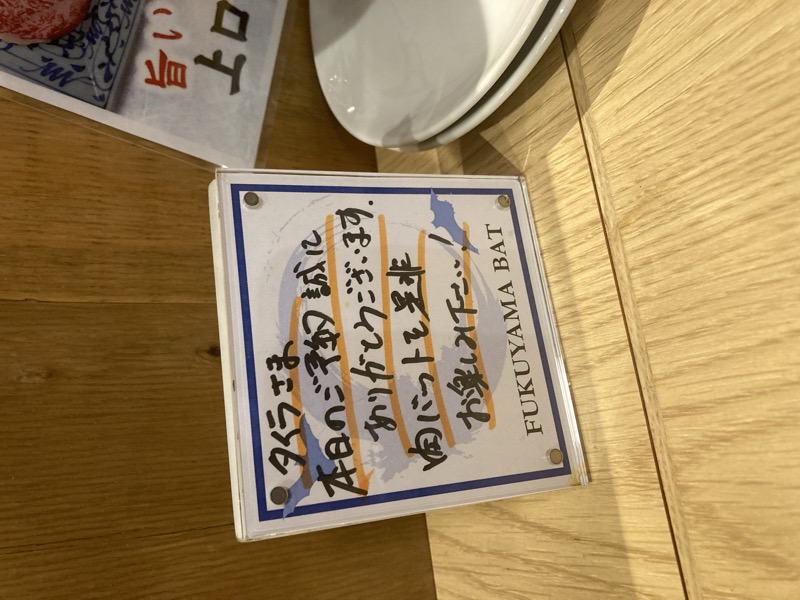 タイラさま
本日のご予約 誠に
ありがとうございます.
肉バットを是非
お楽しみ下さい!
FUKUYAMA BAT
旨い
上口